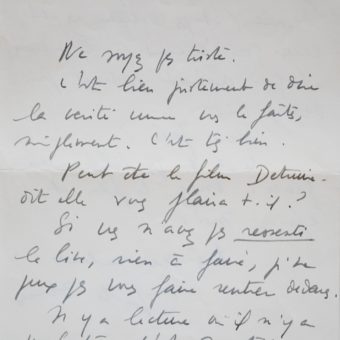 Ne soyez pas triste.
C'est bien justement de dire
la vérité comme vous le faites,
simplement. C'est très bien.
Peut être le film Detruire-
dit elle vous plaira-t-il ?
Si vous n'avez pas ressenti
le livre, rien à faire, je ne
peux pas vous faire rentrer dedans.
Il n'y a lecture où il n'y a